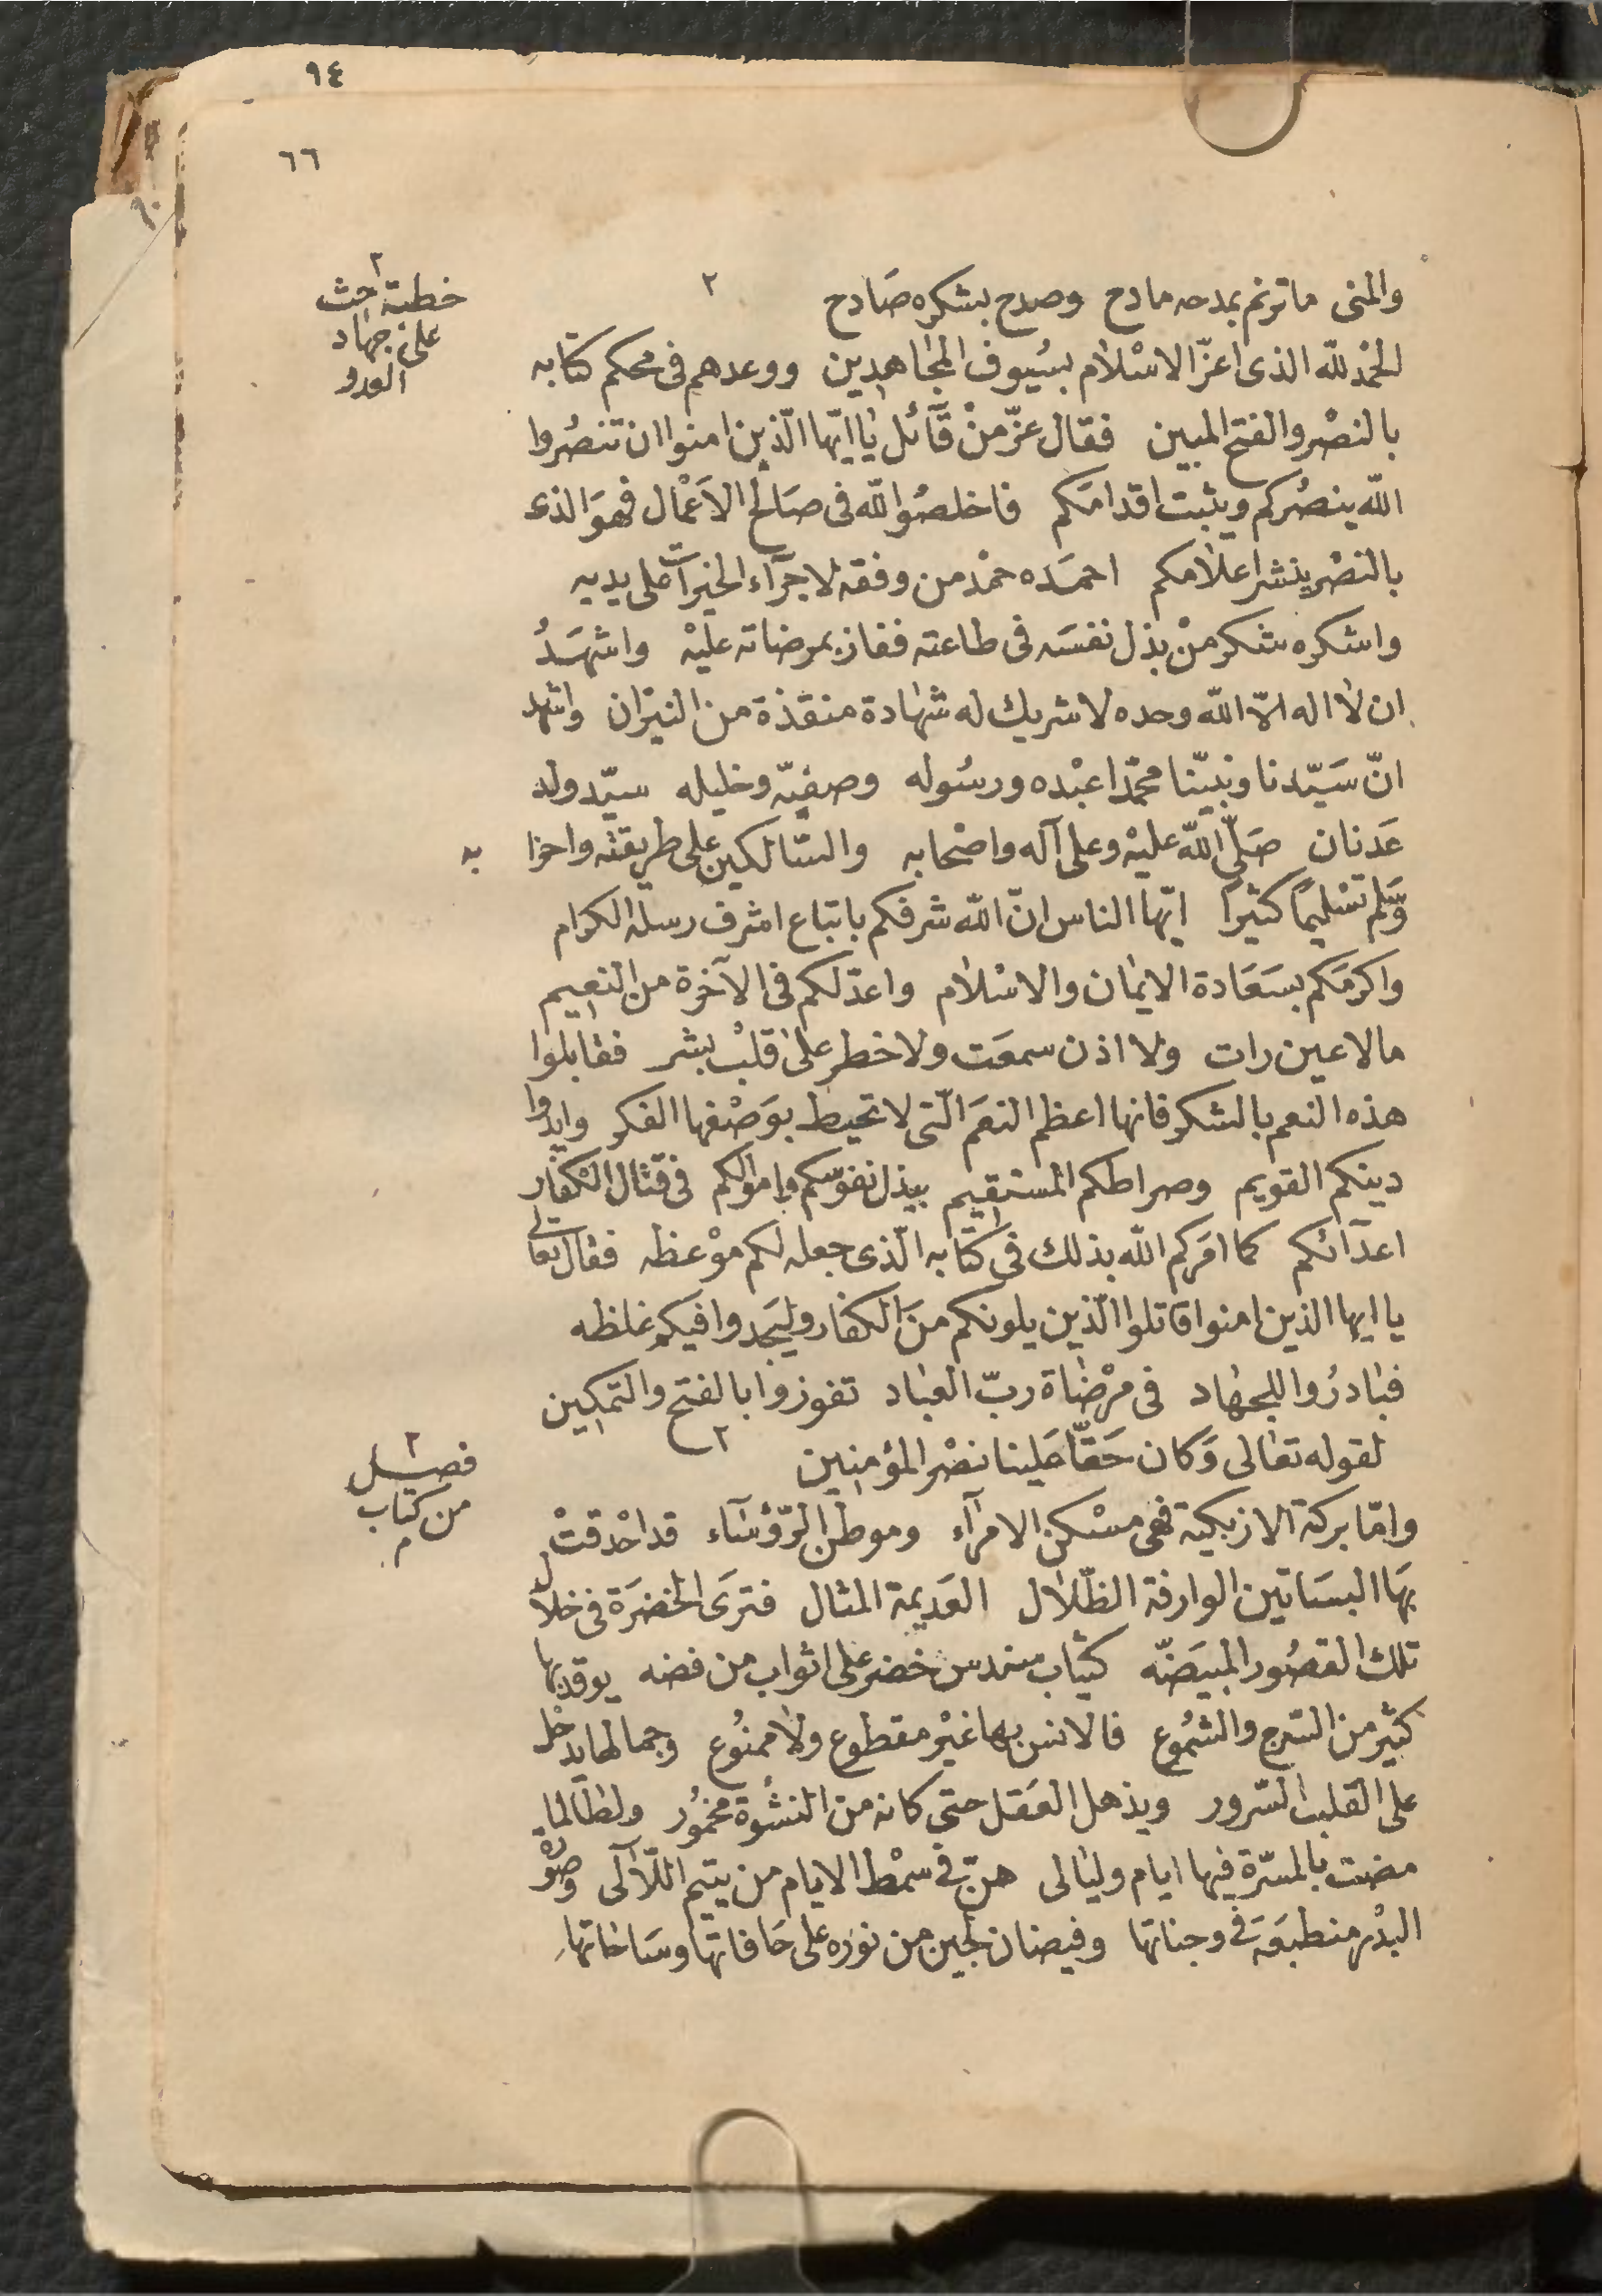 ٩٤
٦٦
٩٠
والمنى ماترنم بمدحه مادح وصدح بشكره صَادح
٢
خطبة حث
على جهاد
العدو
الحمْد للّه الذى اعزّ الاسْلام بسُيوف المجاهدِين ووعدهم فى محكم كتابه
بالنصْر والفتح المبين فقال عزّ منْ قآئل يا ايّها الّذين امنوا ان تنصُروا
اللّه ينصُركم ويثبت اقدامَكم فاخلصُوا للّه فى صَالح الاَعْمال فهوَ الذى
بالنصْر ينشر اعلامكم احمَده حمْد من وفقه لاجرآء الخيرات على يديه
واشكره شكر منْ بذل نفسَه فى طاعته ففاز بمرضاته عليْه واشهَدُ
ان لا اله الاّ اللّه وحده لا شريك له شهادة منقذة من النيرَان واشهد
انّ سَيّدنا ونبيّنا محمّدا عبْده ورسُوله وصفيّه وخليله سيّد ولد
عَدنان صَلّى اللّه عليْه وعلى آله واصْحابه والسّالكين على طريقته واحزا
به
وَسَلم تسْليمًا كثيرًا ايّها الناس انّ اللّه شرفكم باتباع اشرف رسله الكرام
واكرمَكم بسَعَادة الايمان والاسْلام واعدّ لكم فى الآخرة من النعيم
مالا عين رات ولا اذن سمعَت ولا خطر على قلبْ بشر فقابلوا
هذه النعم بالشكر فانها اعظم النعَم الّتى لا تحيط بوَصْفها الفكر وايدوا
دينكم القويم وصراطكم المستقيم ببذل نفوسكم واموالكم فى قتال الكفار
اعدآئكم كما امَركم اللّه بذلك فى كتابه الّذى جعله لكم موْعظه فقال تعالى
يا ايها الذين امنوا قاتلوا الّذين يلونكم منَ الكفار وليَجدوا فيكم غلظه
فبادرُوا للجهاد فى مرْضاة ربّ العباد تفوزوا بالفتح والتمكين
لقوله تعالى وَكان حَقّا عَلينا نصْر المؤمنِين
٢
فصل
من كتاب
وامّا بركة الازبكية فهى مسْكن الامرآء وموطن الرّؤسَآء قد احْدقتْ
بهَا البسَاتين الوارفة الظّلال العَديمة المثال فترَى الخضرَة فى خلال
تلك القصُور المبيَضّه كثياب سندس خضر على اثواب من فضه يوقد بها
كثير من السّرج والشمُوع فالانس بها غيْر مقطوع ولا ممنُوع وجمالها يدخل
على القلب السّرور ويذهل العَقل حتى كانه من النشوة مخمُور ولطالما
مضت بالمسّرة فيها ايام وليالى هنّ فى سمْط الايام من يتيم اللّآلى وصوْرة
البدْر منطبَعَة فى وجناتها وفيضان لجين من نوره على حَافاتها وسَاحاتها